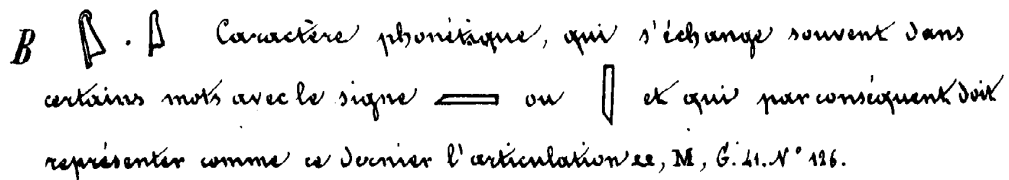 B . Caractère phonétique, qui s'échange souvent dans
certains mots avec le signe ou et qui par conséquent doit
représenter comme ce dernier l'articulation ⲙ, M, G. 41. N° 126.